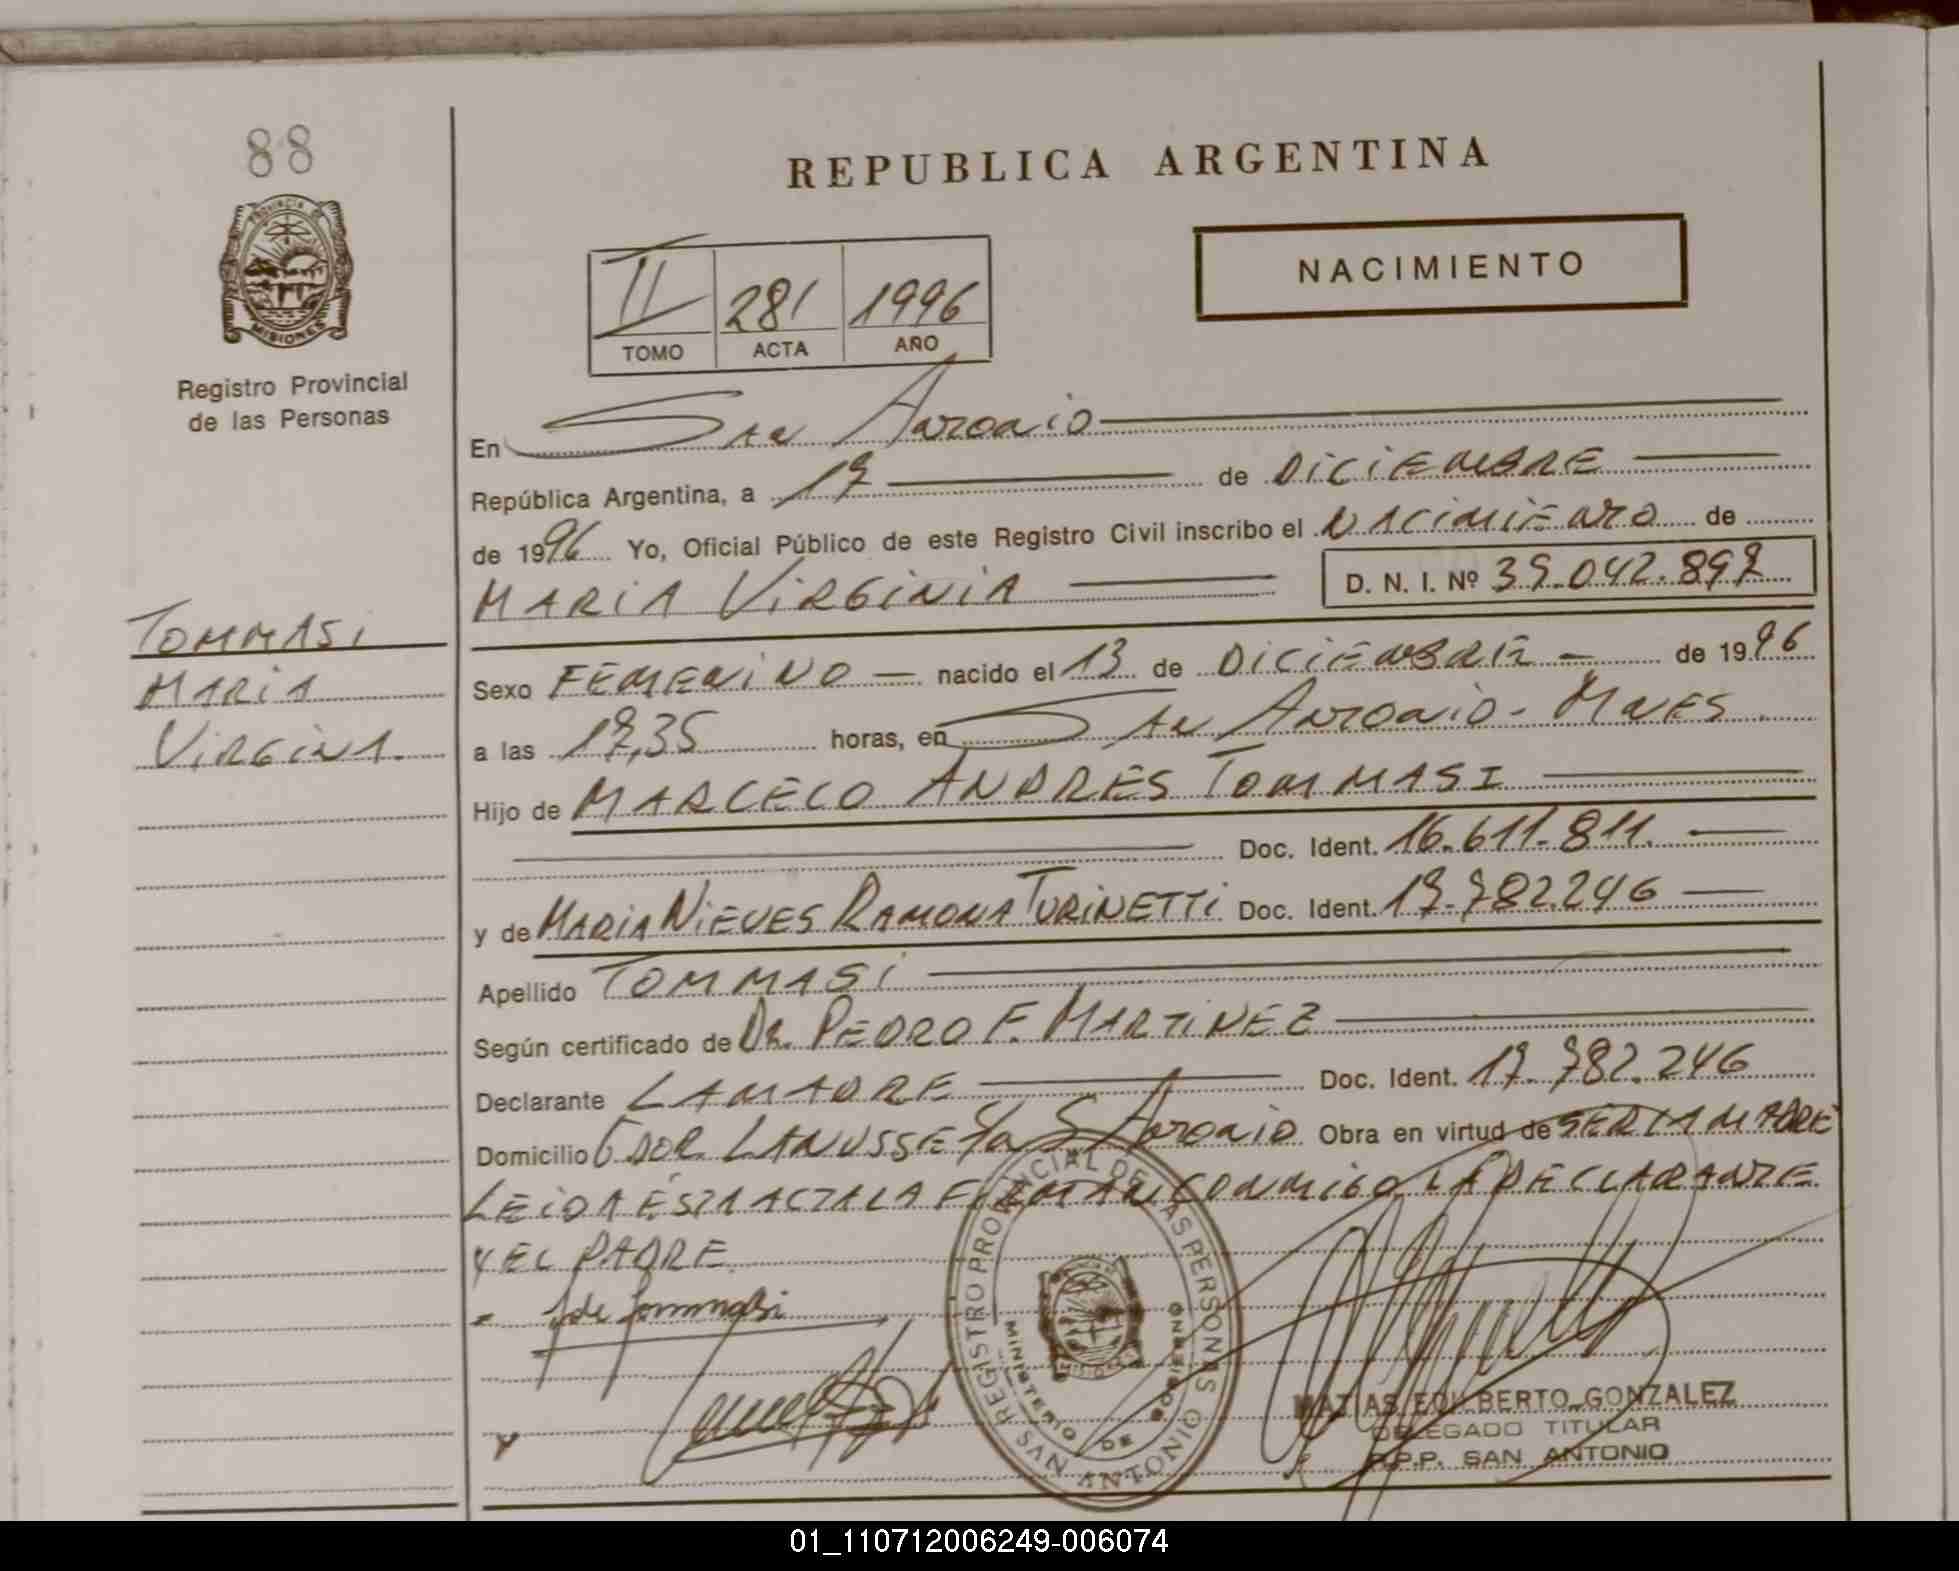 88
PROVINCIA DE
MISIONES
Registro Provincial
de las Personas
REPUBLICA ARGENTINA
II 281 1996
TOMO ACTA AÑO
NACIMIENTO
En San Antonio
República Argentina, a 17 de DICIEMBRE
de 1996 Yo, Oficial Público de este Registro Civil inscribo el NACIMIENTO de
MARIA VIRGINIA D. N. I. Nº 39.042.897
TOMMASI
MARIA
VIRGINIA.
Sexo FEMENINO nacido el 13 de DICIEMBRE de 1996
a las 17,35 horas, en SAN ANTONIO - MNES
Hijo de MARCELO ANDRES TOMMASI
Doc. Ident. 16.611.811.
y de MARIA NIEVES RAMONA TURINETTI Doc. Ident. 17.782.246
Apellido TOMMASI
Según certificado de DR. PEDRO F. MARTINEZ
Declarante LA MADRE Doc. Ident. 17.782.246
Domicilio GDOR. LANUSSE S. ANTONIO Obra en virtud de SER LA MADRE
LEIDA ESTA ACTA LA FIRMAN CONMIGO, LA DECLARANTE
Y EL PADRE
de Tommasi
REGISTRO PROVINCIAL DE LAS PERSONAS
MINISTERIO DE GOBIERNO
SAN ANTONIO
MATIAS EDILBERTO GONZALEZ
DELEGADO TITULAR
R.P.P. SAN ANTONIO
01_110712006249-006074